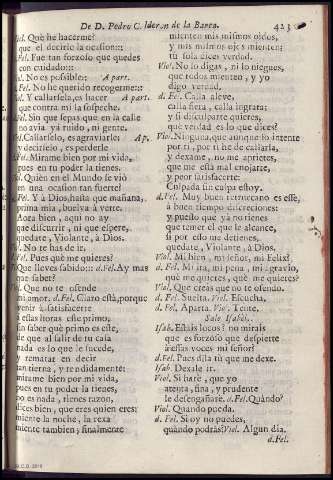 De D. Pedro Calderon de la Barca. 423
Fel. Què he hacerme?
que el decirle la ocasion:::
Fel. Fue tan forzolo que quedes
con cuidado:::
Viol. No es possible:: A part.
Fel. No he querido recogerme::
Viol. Y callarsele, es hacer A part.
que contra mi la sospeche.
Fel. Sin que sepas que en la calle
no avia yà ruido, ni gente.
Viol. Callarselo, es agraviarle; Ap.
y decirselo, es perderle
Fel. Mirame bien por mi vida,
pues en tu poder la tienes.
Viol. Quièn en el Mundo se viò
en una ocasion tan fuerte!
Fel. Y à Dios, hasta que mañana,
prima mia, buelva à verte.
Aora bien, aqui no ay
que discurrir, ni que espere,
quedate, Violante, à Dios.
Viol. No te has de ir.
Fel. Pues què me quieres?
Que lleves sabido:: d. Fel. Ay mas
que saber?
Viol. Que no te ofende
mi amor. d. Fel. Claro està, porque
venir à satisfacerte
à estas horas esse primo,
sin saber què primo es este,
de que al salir de tu casa
nada es lo que le sucede,
y rematar en decir
tan tierna, y rendidamente:
mirame bien por mi vida,
pues en tu poder la tienes,
no es nada, tienes razon,
dices bien, que eres quien eres:
miente la noche, la rexa
miente tambien; finalmente
mienten mis mismos oidos,
y mis mismos ojos mienten;
tù sola dices verdad.
Viol. No lo digas, ni lo niegues,
que todos mienten, y yo
digo verdad.
d. Fel. Calla aleve,
calla fiera, calla ingrata;
y si disculparte quieres,
què verdad es lo que dices?
Viol. Ninguna, que aunque lo intente
por ti, por ti he de callarla,
y dexame, no me aprietes,
que me està mal enojarte,
y peor satisfacerte:
Culpada sin culpa estoy.
d. Fel. Muy buen retruecano es esse,
à buen tiempo discreciones:
y puesto que yà no tienes
que temer el que le alcance,
si por esto me detienes,
quedate, Violante, à Dios.
Viol. Mi bien, mi señor, mi Felix!
d. Fel. Mi ira, mi pena, mi agravio,
què me quieres, què me quieres?
Viol. Que creas que no te ofendo.
d. Fel. Suelta. Viol. Escucha.
d. Fel. Aparta. Vio. Tente.
Sale Isabèl.
Isab. Estais locos? no mirais
que es forzoso que despierte
à essas voces mi señor?
d. Fel. Pues dila tù que me dexe.
Isab. Dexale ir.
Viol. Si harè, que yo
atenta, fina, y prudente
le desengañare. d. Fel. Quàndo?
Viol. Quando pueda.
d. Fel. Si oy no puedes,
quàndo podràs? Viol. Algun dia.
d. Fel.